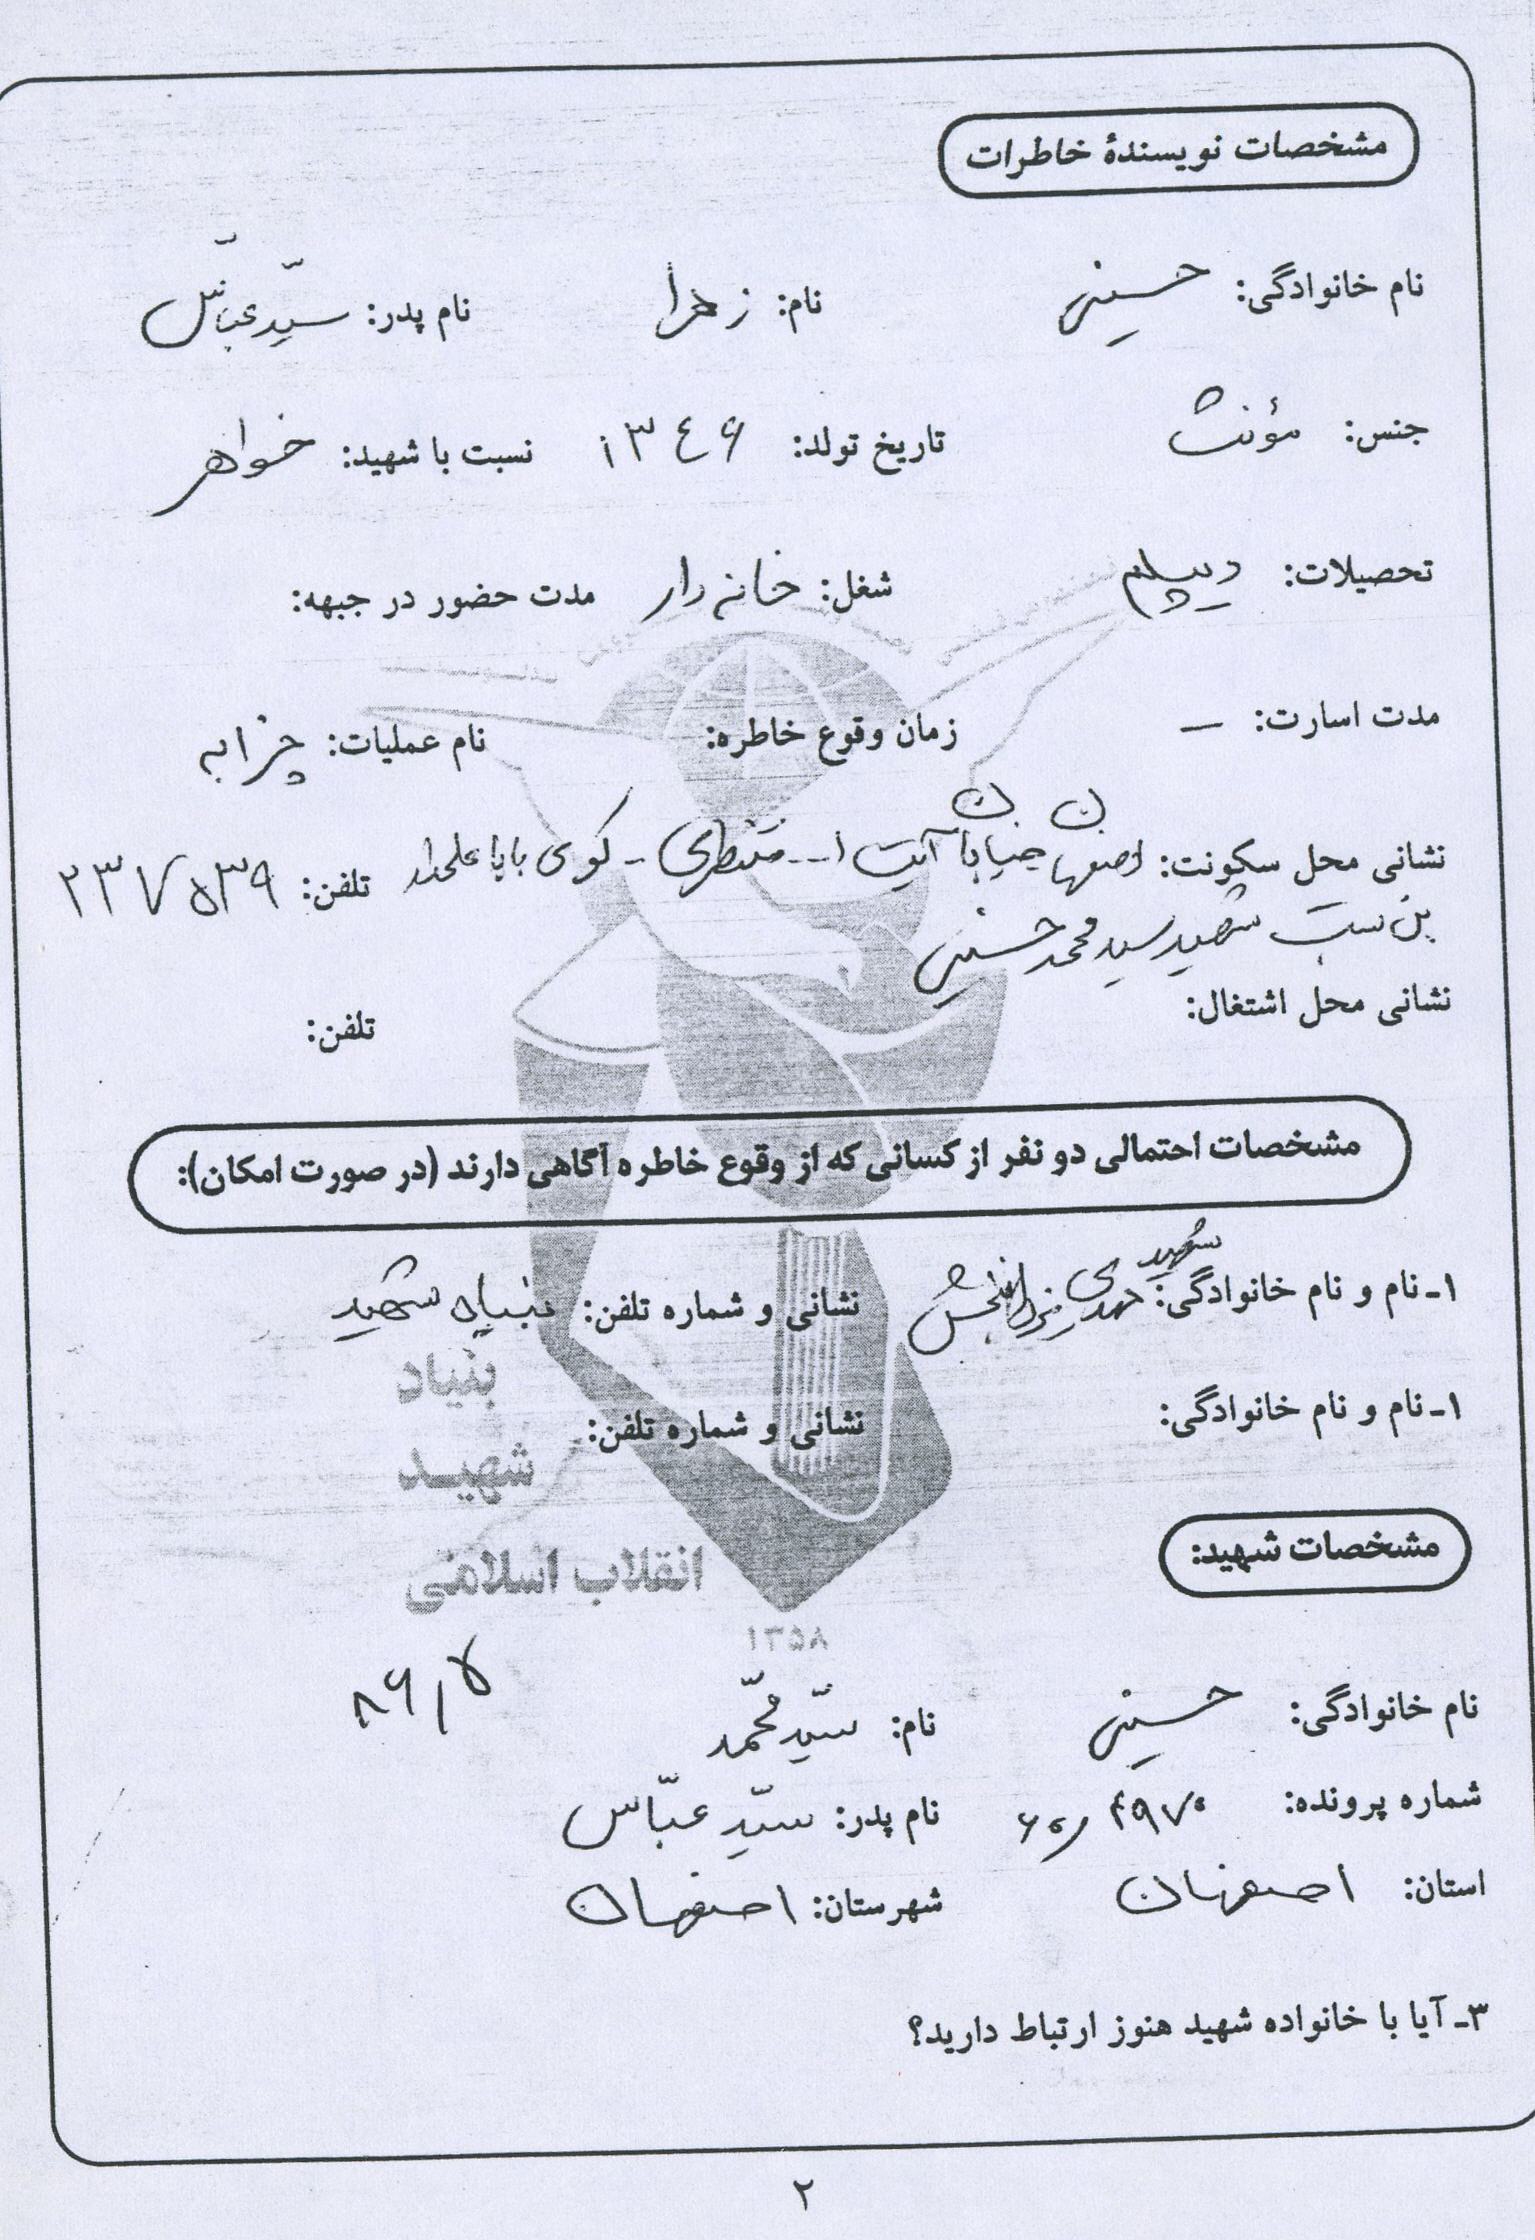 مشخصات نویسندهٔ خاطرات
نام خانوادگی: حسینی نام: زهرا نام پدر: سیّد عبّاس
جنس: مؤنث تاریخ تولد: ۱۳٤۶ نسبت با شهید: خواهر
تحصیلات: دیپلم شغل: خانه دار مدت حضور در جبهه:
مدت اسارت: – زمان وقوع خاطره: نام عملیات: چزابه
نشانی محل سکونت: اصفهان خیابان آیت ا... منتظری - کوی بابا علمدار تلفن: ۲۳۷۵۳۹
بن بست شهید سید محمد حسینی
نشانی محل اشتغال: تلفن:
مشخصات احتمالی دو نفر از کسانی که از وقوع خاطره آگاهی دارند (در صورت امکان):
۱ـ نام و نام خانوادگی: شهید مهدی نشانی و شماره تلفن: بنیاد شهید
۱ـ نام و نام خانوادگی: نشانی و شماره تلفن:
بنیاد
شهید
انقلاب اسلامی
۱۳۵۸
مشخصات شهید:
نام خانوادگی: حسینی نام: سیّد محمّد
شماره پرونده: نام پدر: سیّد عبّاس
استان: اصفهان شهرستان: اصفهان
۳ـ آیا با خانواده شهید هنوز ارتباط دارید؟
۲